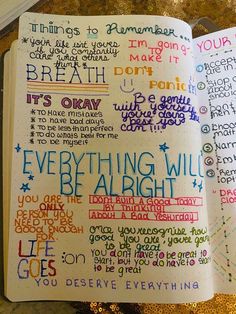 Things to Remember...
*your life isnt yours
if you constantly
care what others
think
I'm going
TO
MAKE IT
BREATH
Don't
panic
IT'S OKAY
* TO MAKE MISTAKES
* to have bad days
* to be less than perfect
* to do whats best for me
* to be myself
Be gentle
with yourself
you're doing
the best
you can!!!
EVERYTHING WILL
BE ALRIGHT
YOU ARE
THE ONLY
PERSON YOU
NEED TO BE
GOOD ENOUGH
FOR
Dont Ruin A Good Today
BY Thinking
About A Bad Yesturday
once you recognise how
good you are, you're going
to be great
you don't have to be great to
start, but you do have to start
to be great
LIFE
GOES :on
YOU DESERVE EVERYTHING
YOUR